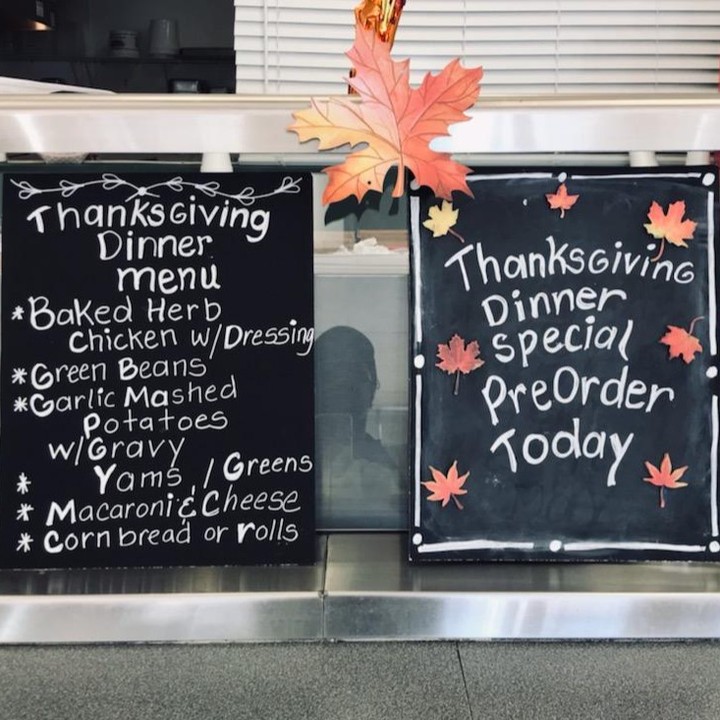 ThanksGiving
Dinner
menu
*Baked Herb
Chicken w/Dressing
*Green Beans
*Garlic Mashed
Potatoes
w/Gravy
* Yams / Greens
* Macaroni & Cheese
* Cornbread or rolls
ThanksGiving
Dinner
special
PreOrder
Today